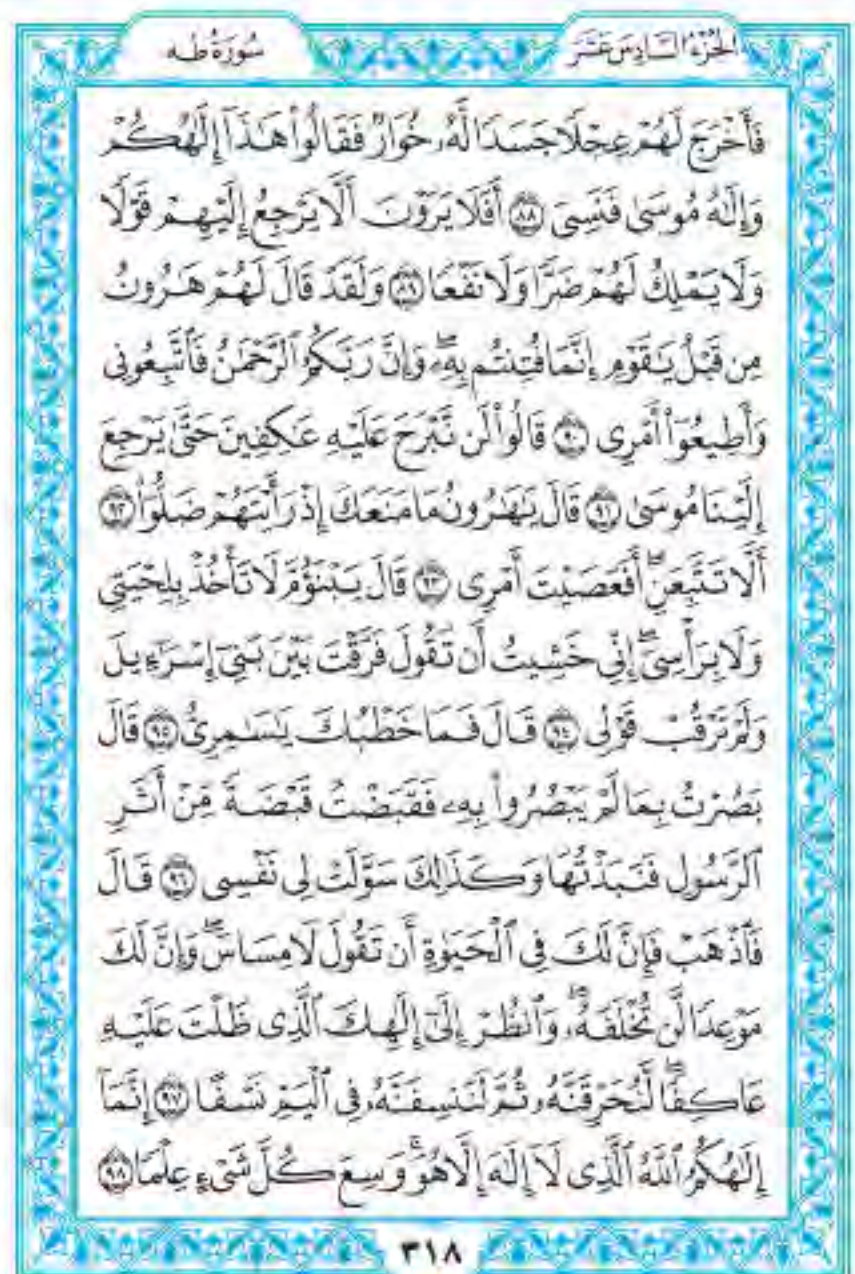 الجزء السادس عشر
سورة طه
فَأَخْرَجَ لَهُمْ عِجْلًا جَسَدًا لَّهُۥ خُوَارٌ فَقَالُوا۟ هَٰذَآ إِلَٰهُكُمْ
وَإِلَٰهُ مُوسَىٰ فَنَسِىَ ٨٨ أَفَلَا يَرَوْنَ أَلَّا يَرْجِعُ إِلَيْهِمْ قَوْلًا
وَلَا يَمْلِكُ لَهُمْ ضَرًّا وَلَا نَفْعًا ٨٩ وَلَقَدْ قَالَ لَهُمْ هَٰرُونُ
مِن قَبْلُ يَٰقَوْمِ إِنَّمَا فُتِنتُم بِهِۦ ۖ وَإِنَّ رَبَّكُمُ ٱلرَّحْمَٰنُ فَٱتَّبِعُونِى
وَأَطِيعُوٓا۟ أَمْرِى ٩٠ قَالُوا۟ لَن نَّبْرَحَ عَلَيْهِ عَٰكِفِينَ حَتَّىٰ يَرْجِعَ
إِلَيْنَا مُوسَىٰ ٩١ قَالَ يَٰهَٰرُونُ مَا مَنَعَكَ إِذْ رَأَيْتَهُمْ ضَلُّوٓا۟ ٩٢
أَلَّا تَتَّبِعَنِ ۖ أَفَعَصَيْتَ أَمْرِى ٩٣ قَالَ يَبْنَؤُمَّ لَا تَأْخُذْ بِلِحْيَتِى
وَلَا بِرَأْسِىٓ ۖ إِنِّى خَشِيتُ أَن تَقُولَ فَرَّقْتَ بَيْنَ بَنِىٓ إِسْرَٰٓءِيلَ
وَلَمْ تَرْقُبْ قَوْلِى ٩٤ قَالَ فَمَا خَطْبُكَ يَٰسَٰمِرِىُّ ٩٥ قَالَ
بَصُرْتُ بِمَا لَمْ يَبْصُرُوا۟ بِهِۦ فَقَبَضْتُ قَبْضَةً مِّنْ أَثَرِ
ٱلرَّسُولِ فَنَبَذْتُهَا وَكَذَٰلِكَ سَوَّلَتْ لِى نَفْسِى ٩٦ قَالَ
فَٱذْهَبْ فَإِنَّ لَكَ فِى ٱلْحَيَوٰةِ أَن تَقُولَ لَا مِسَاسَ ۖ وَإِنَّ لَكَ
مَوْعِدًا لَّن تُخْلَفَهُۥ ۖ وَٱنظُرْ إِلَىٰٓ إِلَٰهِكَ ٱلَّذِى ظَلْتَ عَلَيْهِ
عَاكِفًا ۖ لَّنُحَرِّقَنَّهُۥ ثُمَّ لَنَنسِفَنَّهُۥ فِى ٱلْيَمِّ نَسْفًا ٩٧ إِنَّمَآ
إِلَٰهُكُمُ ٱللَّهُ ٱلَّذِى لَآ إِلَٰهَ إِلَّا هُوَ ۚ وَسِعَ كُلَّ شَىْءٍ عِلْمًا ٩٨
٣١٨